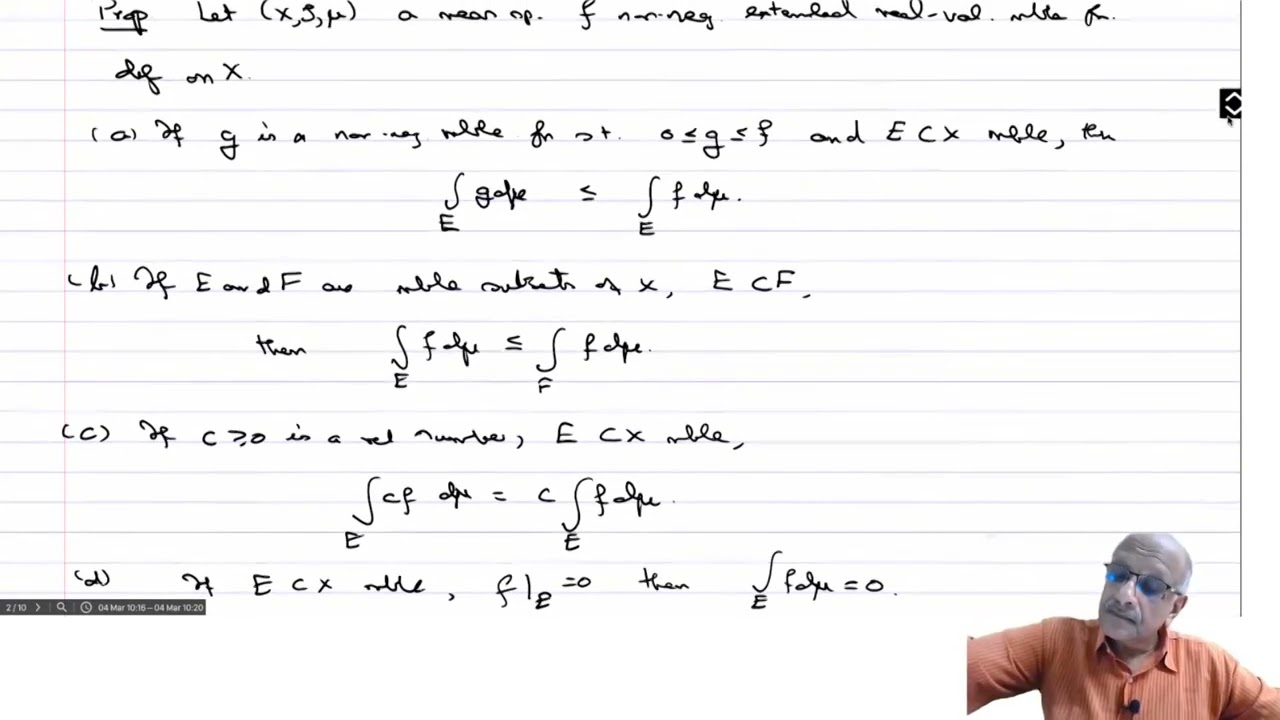 Prop Let (X,S,μ) a meas sp. f non-neg. extended real-val. mble fn.
def on X.
(a) If g is a non-neg mble fn s.t. 0≤g≤f and E⊂X mble, then
∫_E g dμ ≤ ∫_E f dμ.
(b) If E and F are mble subsets of X, E⊂F,
then ∫_E f dμ ≤ ∫_F f dμ.
(c) If c≥0 is a rel number, E⊂X mble,
∫_E cf dμ = c ∫_E f dμ.
(d) If E⊂X mble, f|_E =0 then ∫_E f dμ = 0.
2 / 10 04 Mar 10:16 – 04 Mar 10:20